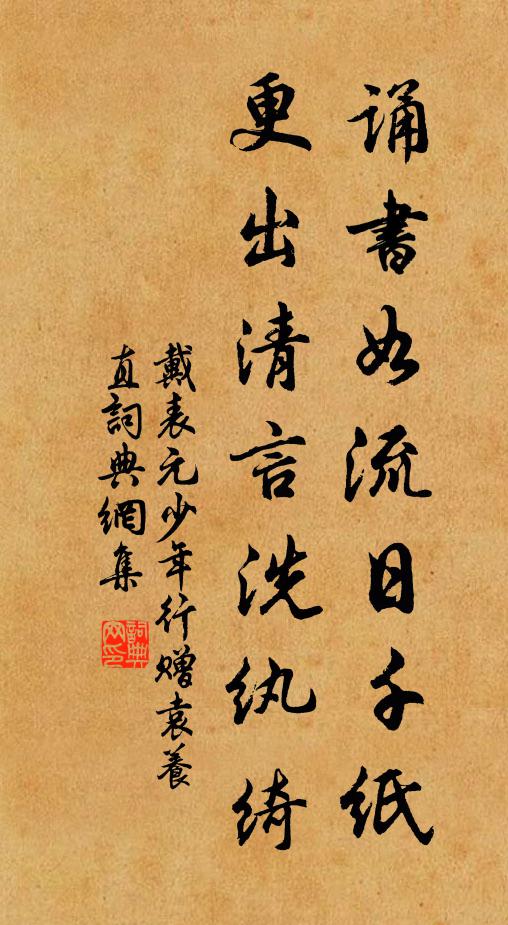 诵書如流日千紙
更出清言洗纨绮
戴表元少年行赠袁養
直詞典網集
詞典網印